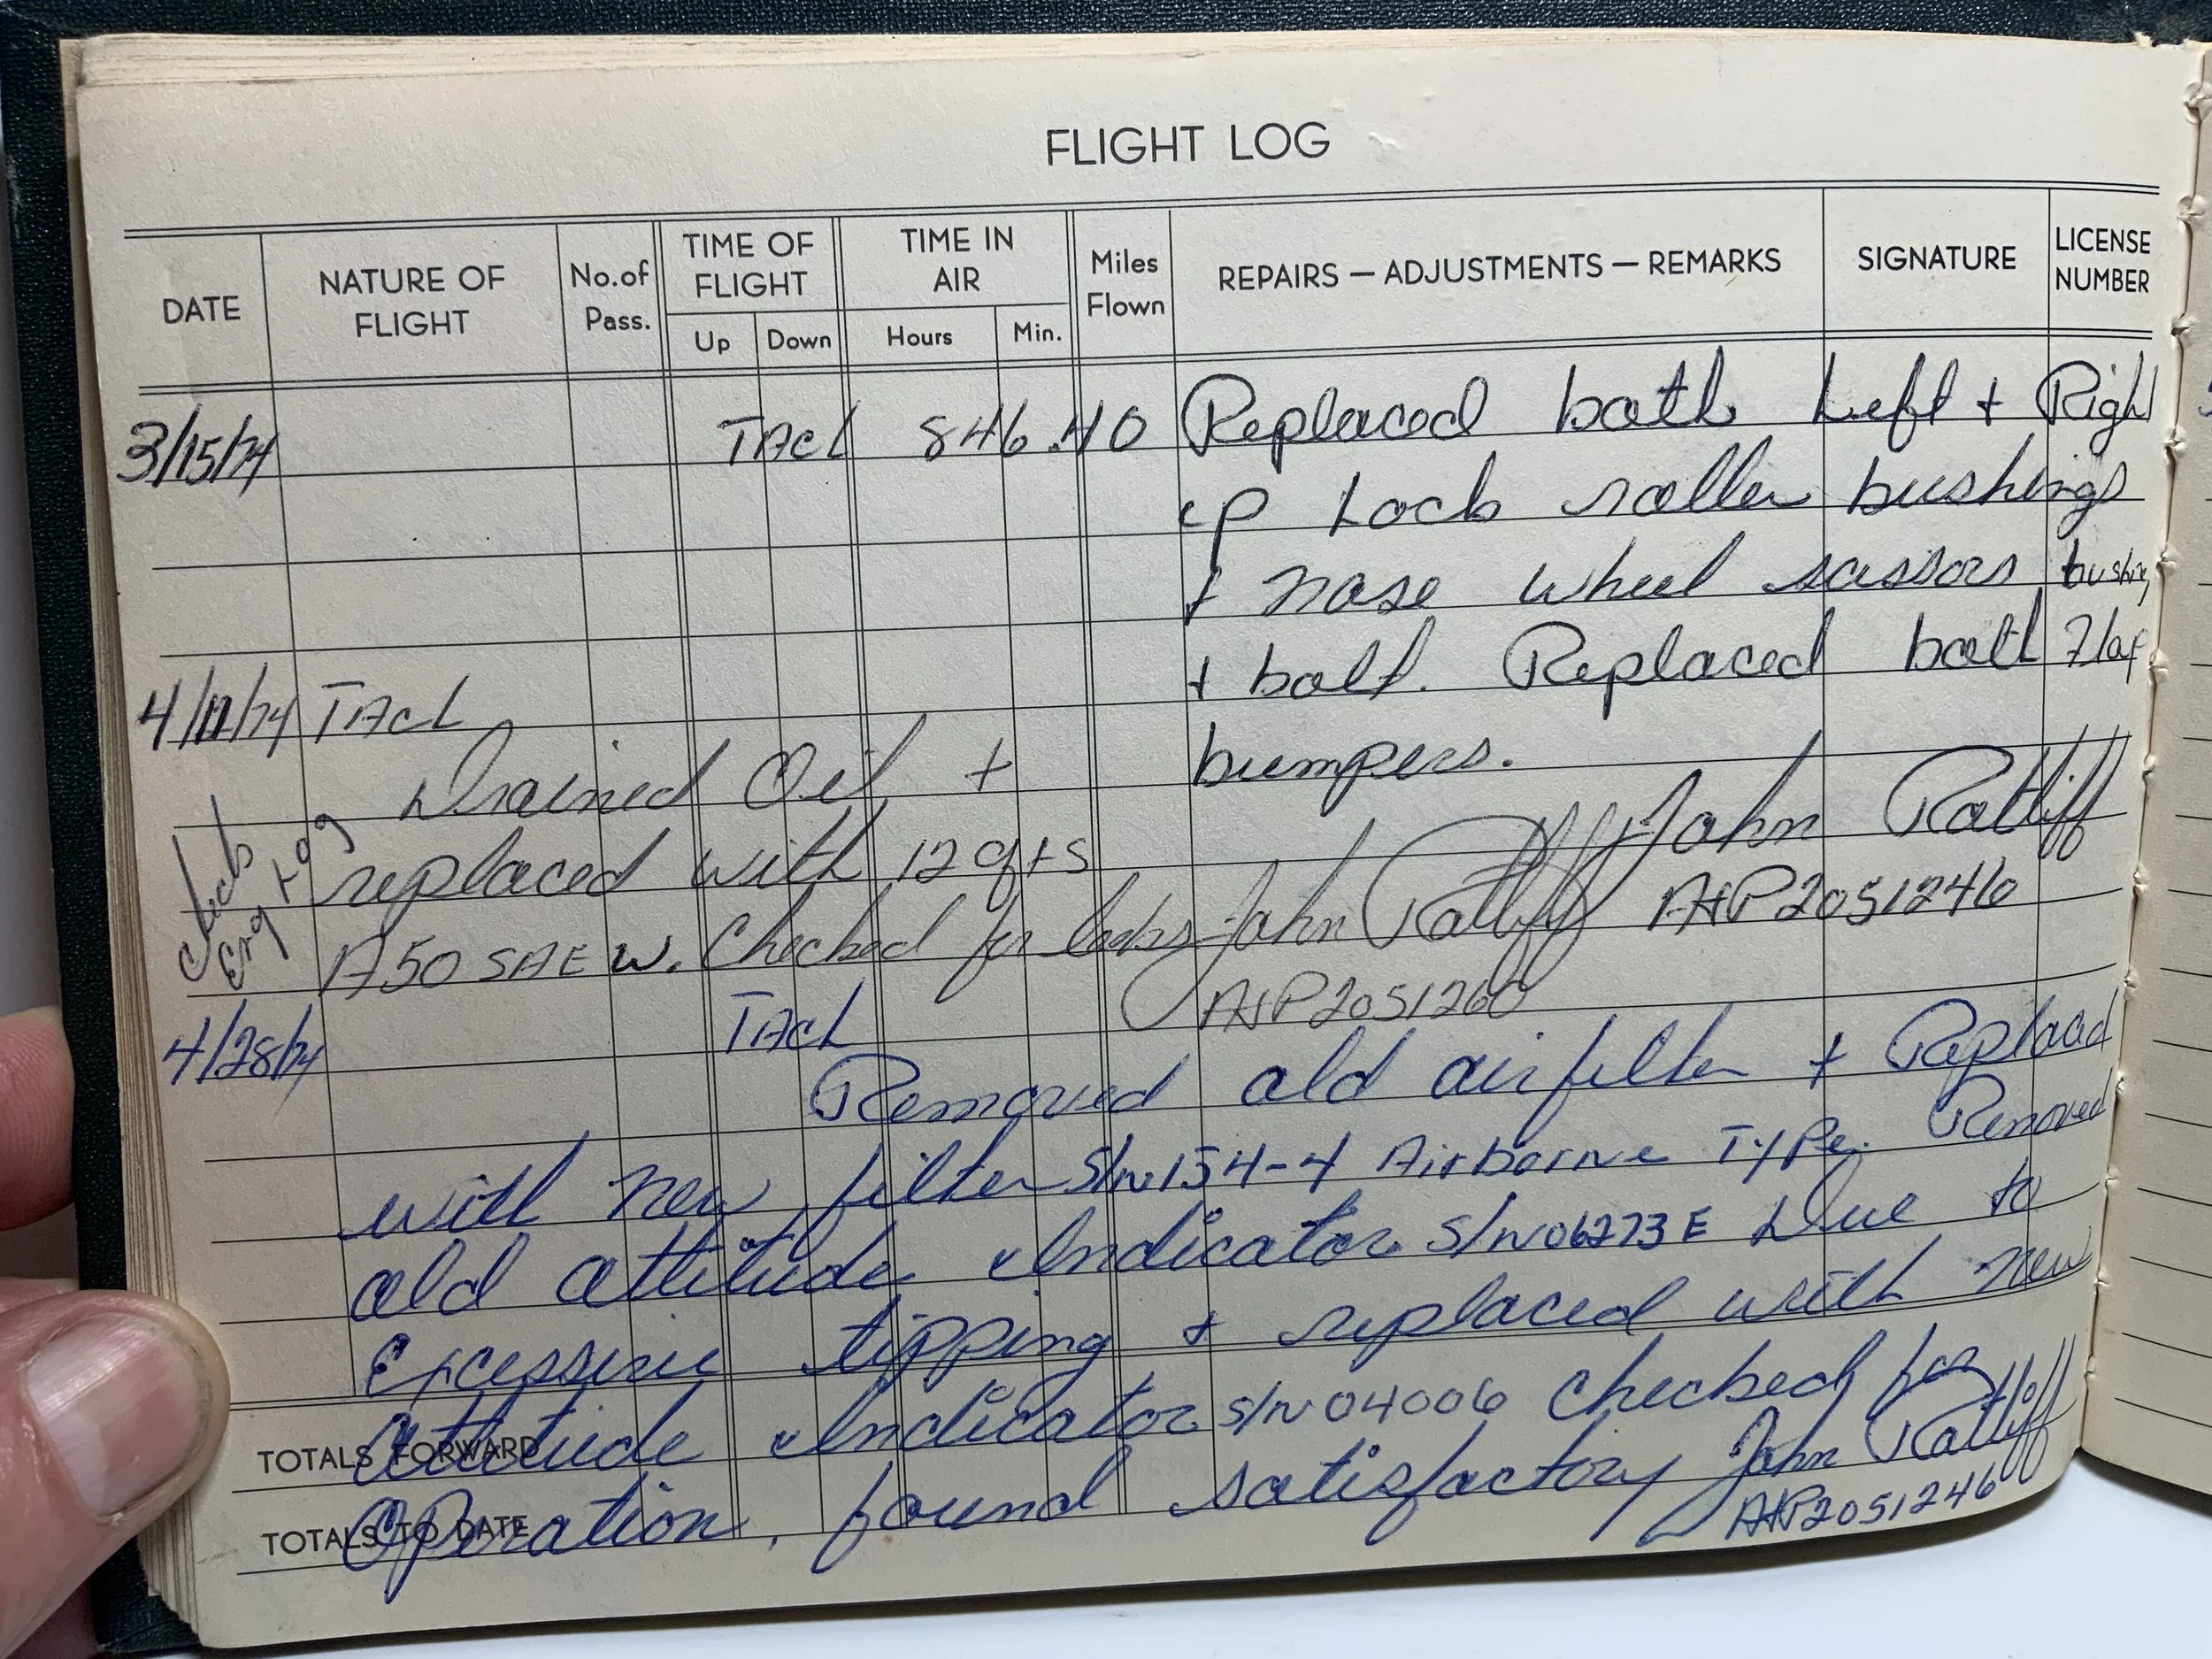 FLIGHT LOG
DATE
NATURE OF FLIGHT
No. of Pass.
TIME OF FLIGHT
Up
Down
TIME IN AIR
Hours
Min.
Miles Flown
REPAIRS — ADJUSTMENTS — REMARKS
SIGNATURE
LICENSE NUMBER
3/15/74 TAch 846.40 Replaced both Left + Right
up Lock roller bushings
+ nose wheel scissors bushing
+ bolt. Replaced both Flap
bumpers.
John Ratliff
A+P 2051246
4/11/74 TAch
Drained Oil +
replaced with 12 qts
A50 SAE W. Checked for leaks John Ratliff
A+P 2051260
Check
Eng Log
4/28/74 TAch
Removed old airfilter + Replaced
with new filter S/N 154-4 Airborne Type. Removed
old attitude Indicator S/N 06273E Due to
Excessive tipping + replaced with new
attitude Indicator S/N 04006 checked for
Operation, found satisfactory John Ratliff
A+P 2051246
TOTALS FORWARD
TOTALS TO DATE